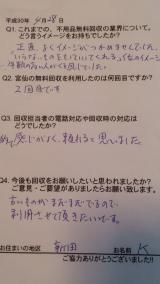 平成30年 4月28日
Q1.これまでの、不用品無料回収の業界について、
どう言うイメージをお持ちでしたか？
正直、よくイメージがつかめませんでした。
いらないものをもっていってくれる
Q2.宮仙の無料回収を利用したのは何回目ですか？
2回目です
Q3.回収担当者の電話対応や回収時の対応は
どうでしたか？
感じがよく、頼れると思いました
Q4.今後も回収をお願いしたいと思われましたか？
ご意見・ご要望がありましたらお願い致します。
古いものがまだまだでるので、
利用させて頂きたいです。
お住まいの地区
お名前 K
ご協力ありがとうございました!!